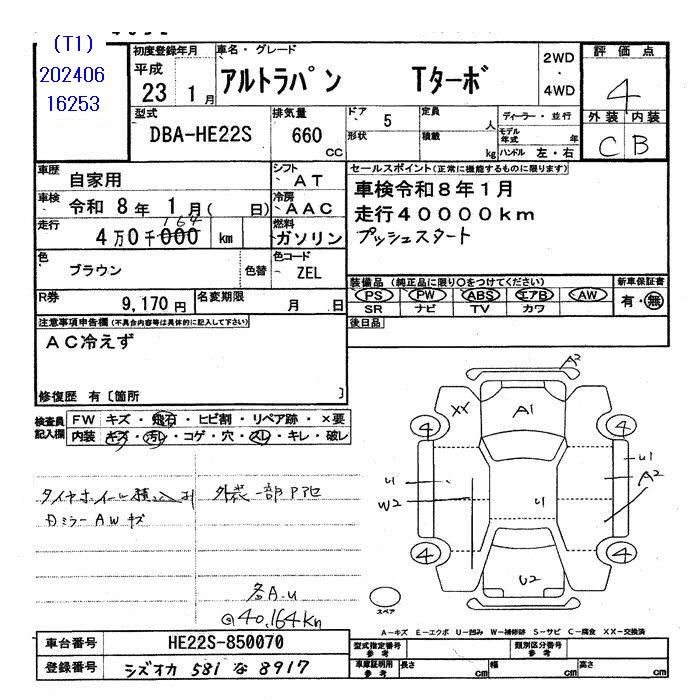 (T1)
202406
16253
初度登録年月
平成
23 1月
車名・グレード
アルトラパン Tターボ
2WD
・
4WD
評価点
4
外装 内装
C B
型式
DBA-HE22S
排気量
660
cc
ドア 5
形状
定員 人
積載 kg
ディーラー・並行
モデル年式 年
ハンドル 左・右
車歴
自家用
シフト
AT
車検 令和 8年 1月( 日)
冷房
AAC
走行
164
4万0千000 km
燃料
ガソリン
色
ブラウン
色替
色コード
ZEL
R券
9,170円
名変期限
月 日
セールスポイント(正常に機能するものに限ります)
車検令和8年1月
走行40000km
プッシュスタート
装備品(純正品に限り○をつけてください)
PS PW ABS エアB AW
SR ナビ TV カワ
新車保証書
有・無
後日品
注意事項申告欄(不具合内容等は具体的に記入して下さい)
AC冷えず
修復歴 有〔箇所 〕
検査員
記入欄
FW キズ・飛石・ヒビ割・リペア跡・×要
内装 キズ・汚レ・コゲ・穴・スレ・キレ・破レ
タイヤホイール積込み
外装一部アロセ
ミラーAWキズ
各A.U
@40,164km
A2
XX
A1
4
4
U1
U1
A2
U1
W2
4
4
U2
スペア
A-キズ E-エクボ U-凹み W-補修跡 S-サビ C-腐食 XX-交換済
車台番号
HE22S-850070
登録番号
シズオカ 581 な 8917
型式指定番号
参考
類別区分番号
参考
車庫証明用
参考
長さ cm
幅 cm
高さ cm